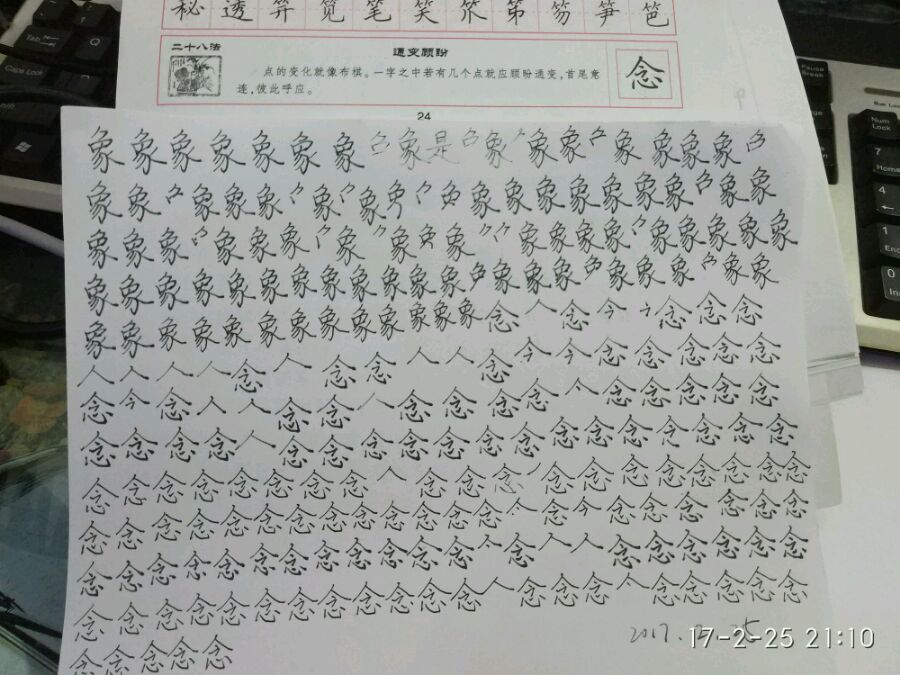 秘 透 笄 笕 笔 笑 笊 第 笏 笋 笆
二十八法
通变顾盼
点的变化就像布棋。一字之中若有几个点就应顾盼通变,首尾竟
连,彼此呼应。
念
24
象 象 象 象 象 象 象 象 是 象 象 象 象 象 象 象
象 象 象 象 象 象 象 象 象 象 象 象 象 象 象
象 象 象 象 象 象 象 象 象 象 象 象 象 象 象 象 象 象
象 象 象 象 象 象 象 象 象 象 象 象 象 象 象 象 象 象 象 象 象
象 象 象 象 象 象 象 象 象 象 象 象 象 念 人 念 今 念 念 念
人 人 人 人 念 人 念 念 人 人 念 今 今 念 念 念 念 念
念 今 念 人 人 念 念 念 念 念 念 人 念 念 念 念 念
念 念 念 念 人 念 念 念 念 念 念 念 念 念 念 念 念 念 念
念 念 念 念 念 念 念 念 人 念 念 念 念 念 念 念 念 念 念 念
念 念 念 念 念 念 念 念 念 念 念 念 念 念 今 念 念 念 念 念 念
念 念 念 念 念 念 念 念 念 念 念 念 念 人 人 念 念 念 念 念 念
念 念 念 念 念 念 念 念 念 念 念 念 人 念 念 念 人 念 念 念 念 念
念 念 念 念 念
2017.2.25
17-2-25 21:10
Tab
Q
Caps Lock
Pause
Break
Num Lock
Num
Lock
7
Home
4
←
1
End
0